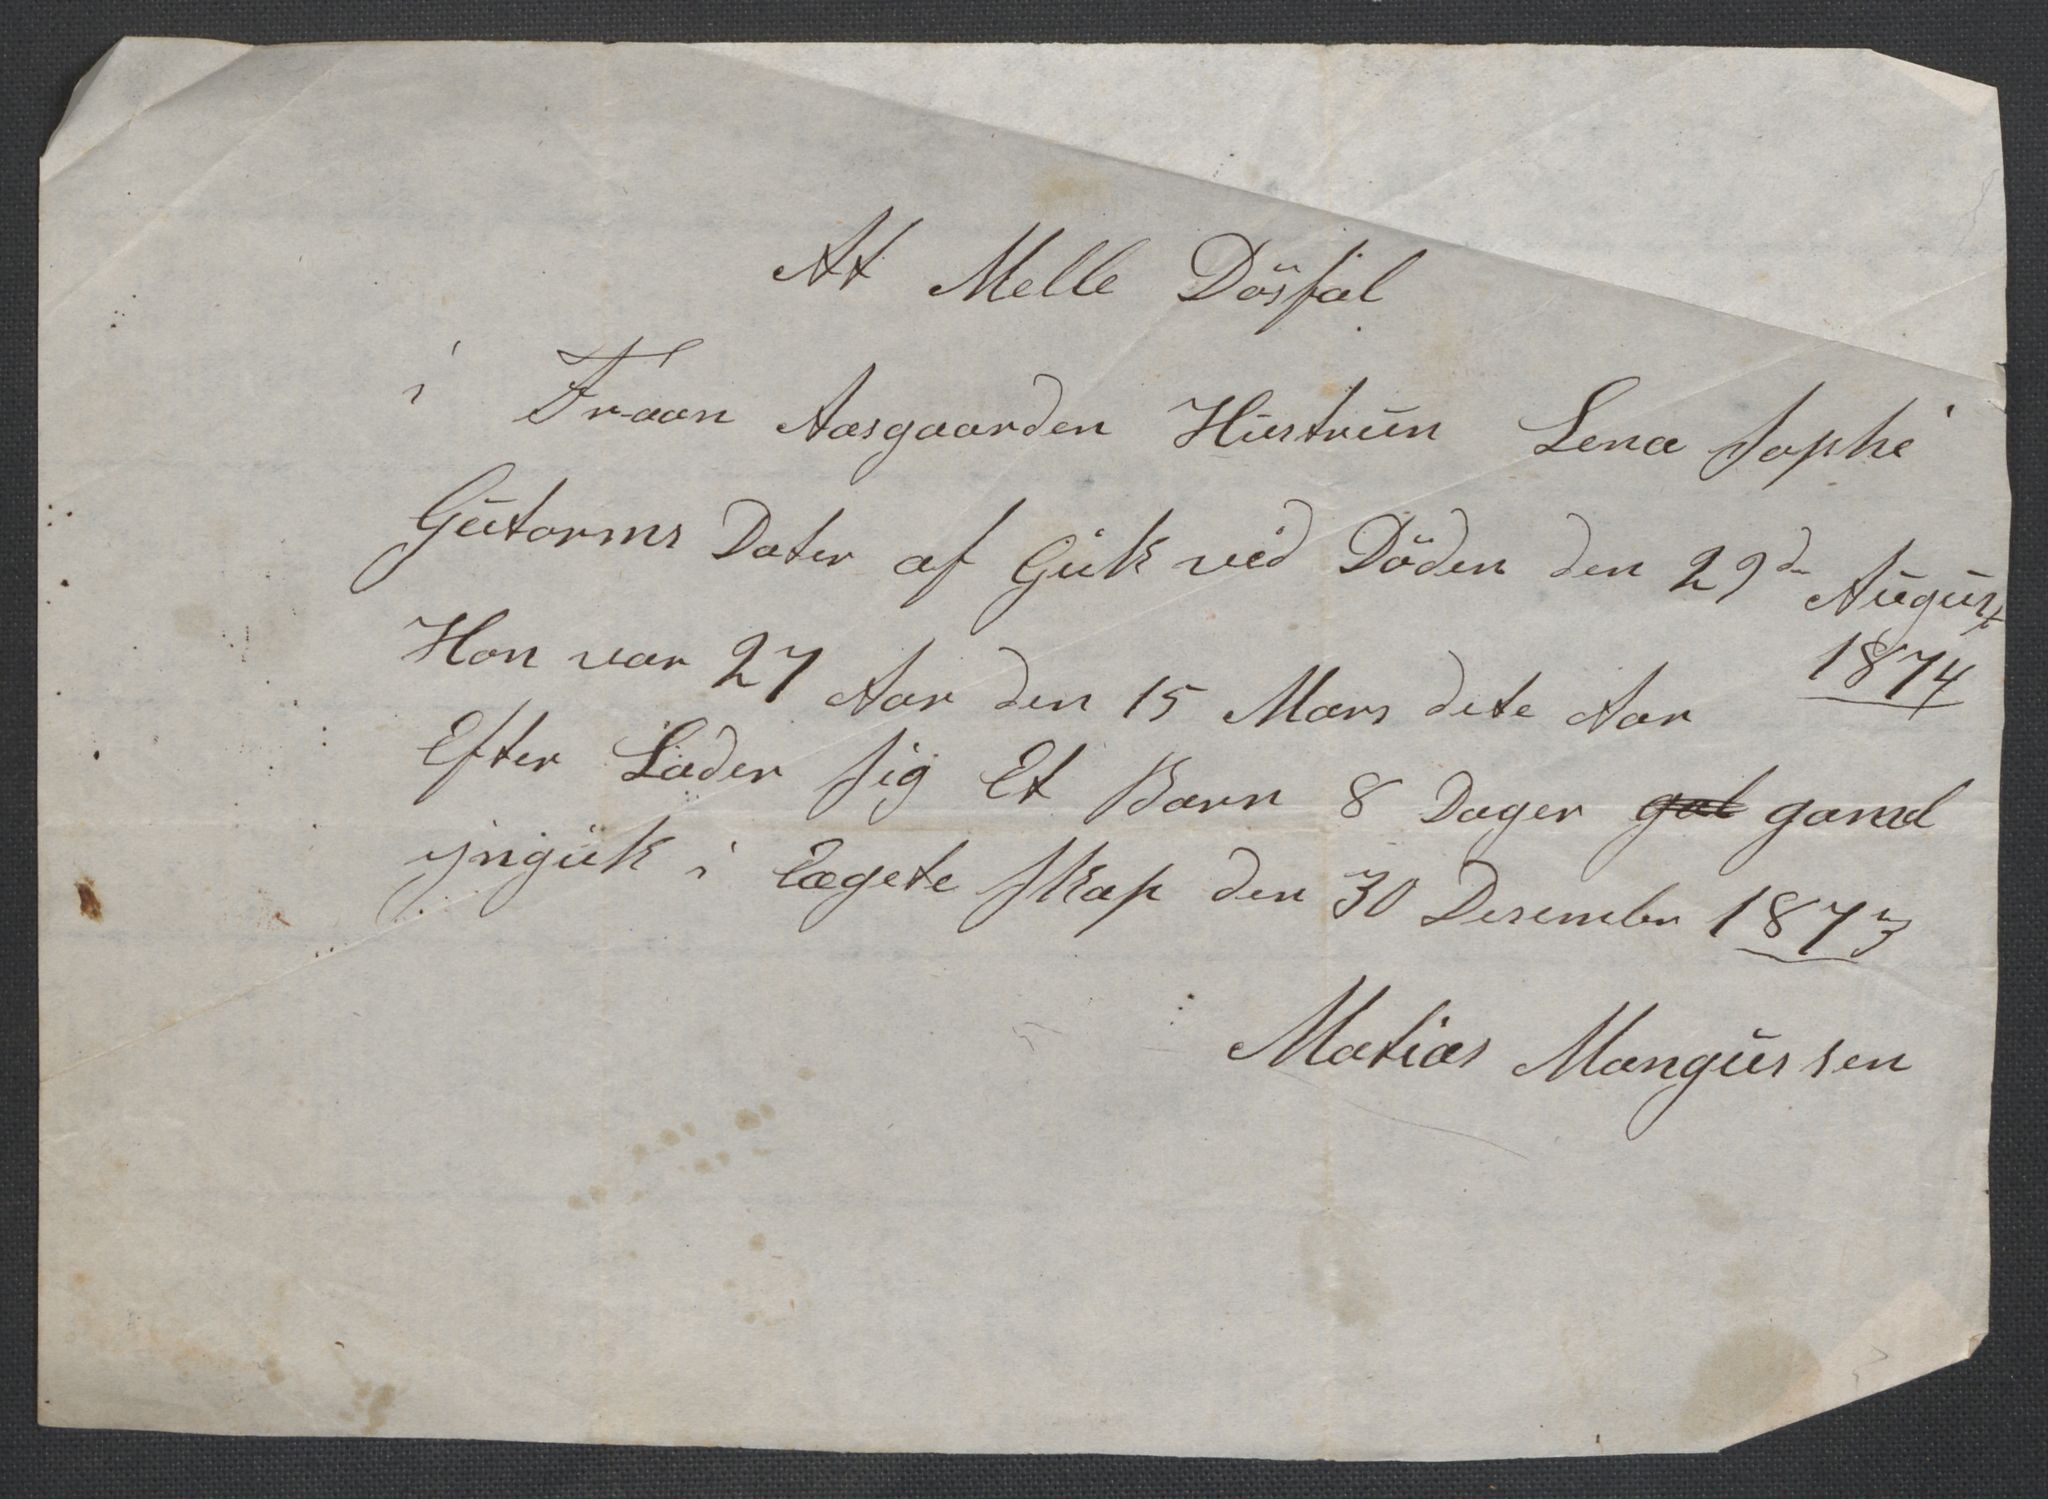 At Melle Dösfal
i Fraan Aasgaarden Hustrun Lena Sophi
Gutorms Dater af Gik ved Döden den 29d August
1874
Hon var 27 Aar den 15 Mars dete Aar
Efter Lader sig Et Barn 8 Dager gal gamel
yngik i Ægete skap den 30 Desember 1873
Matias Mangussen